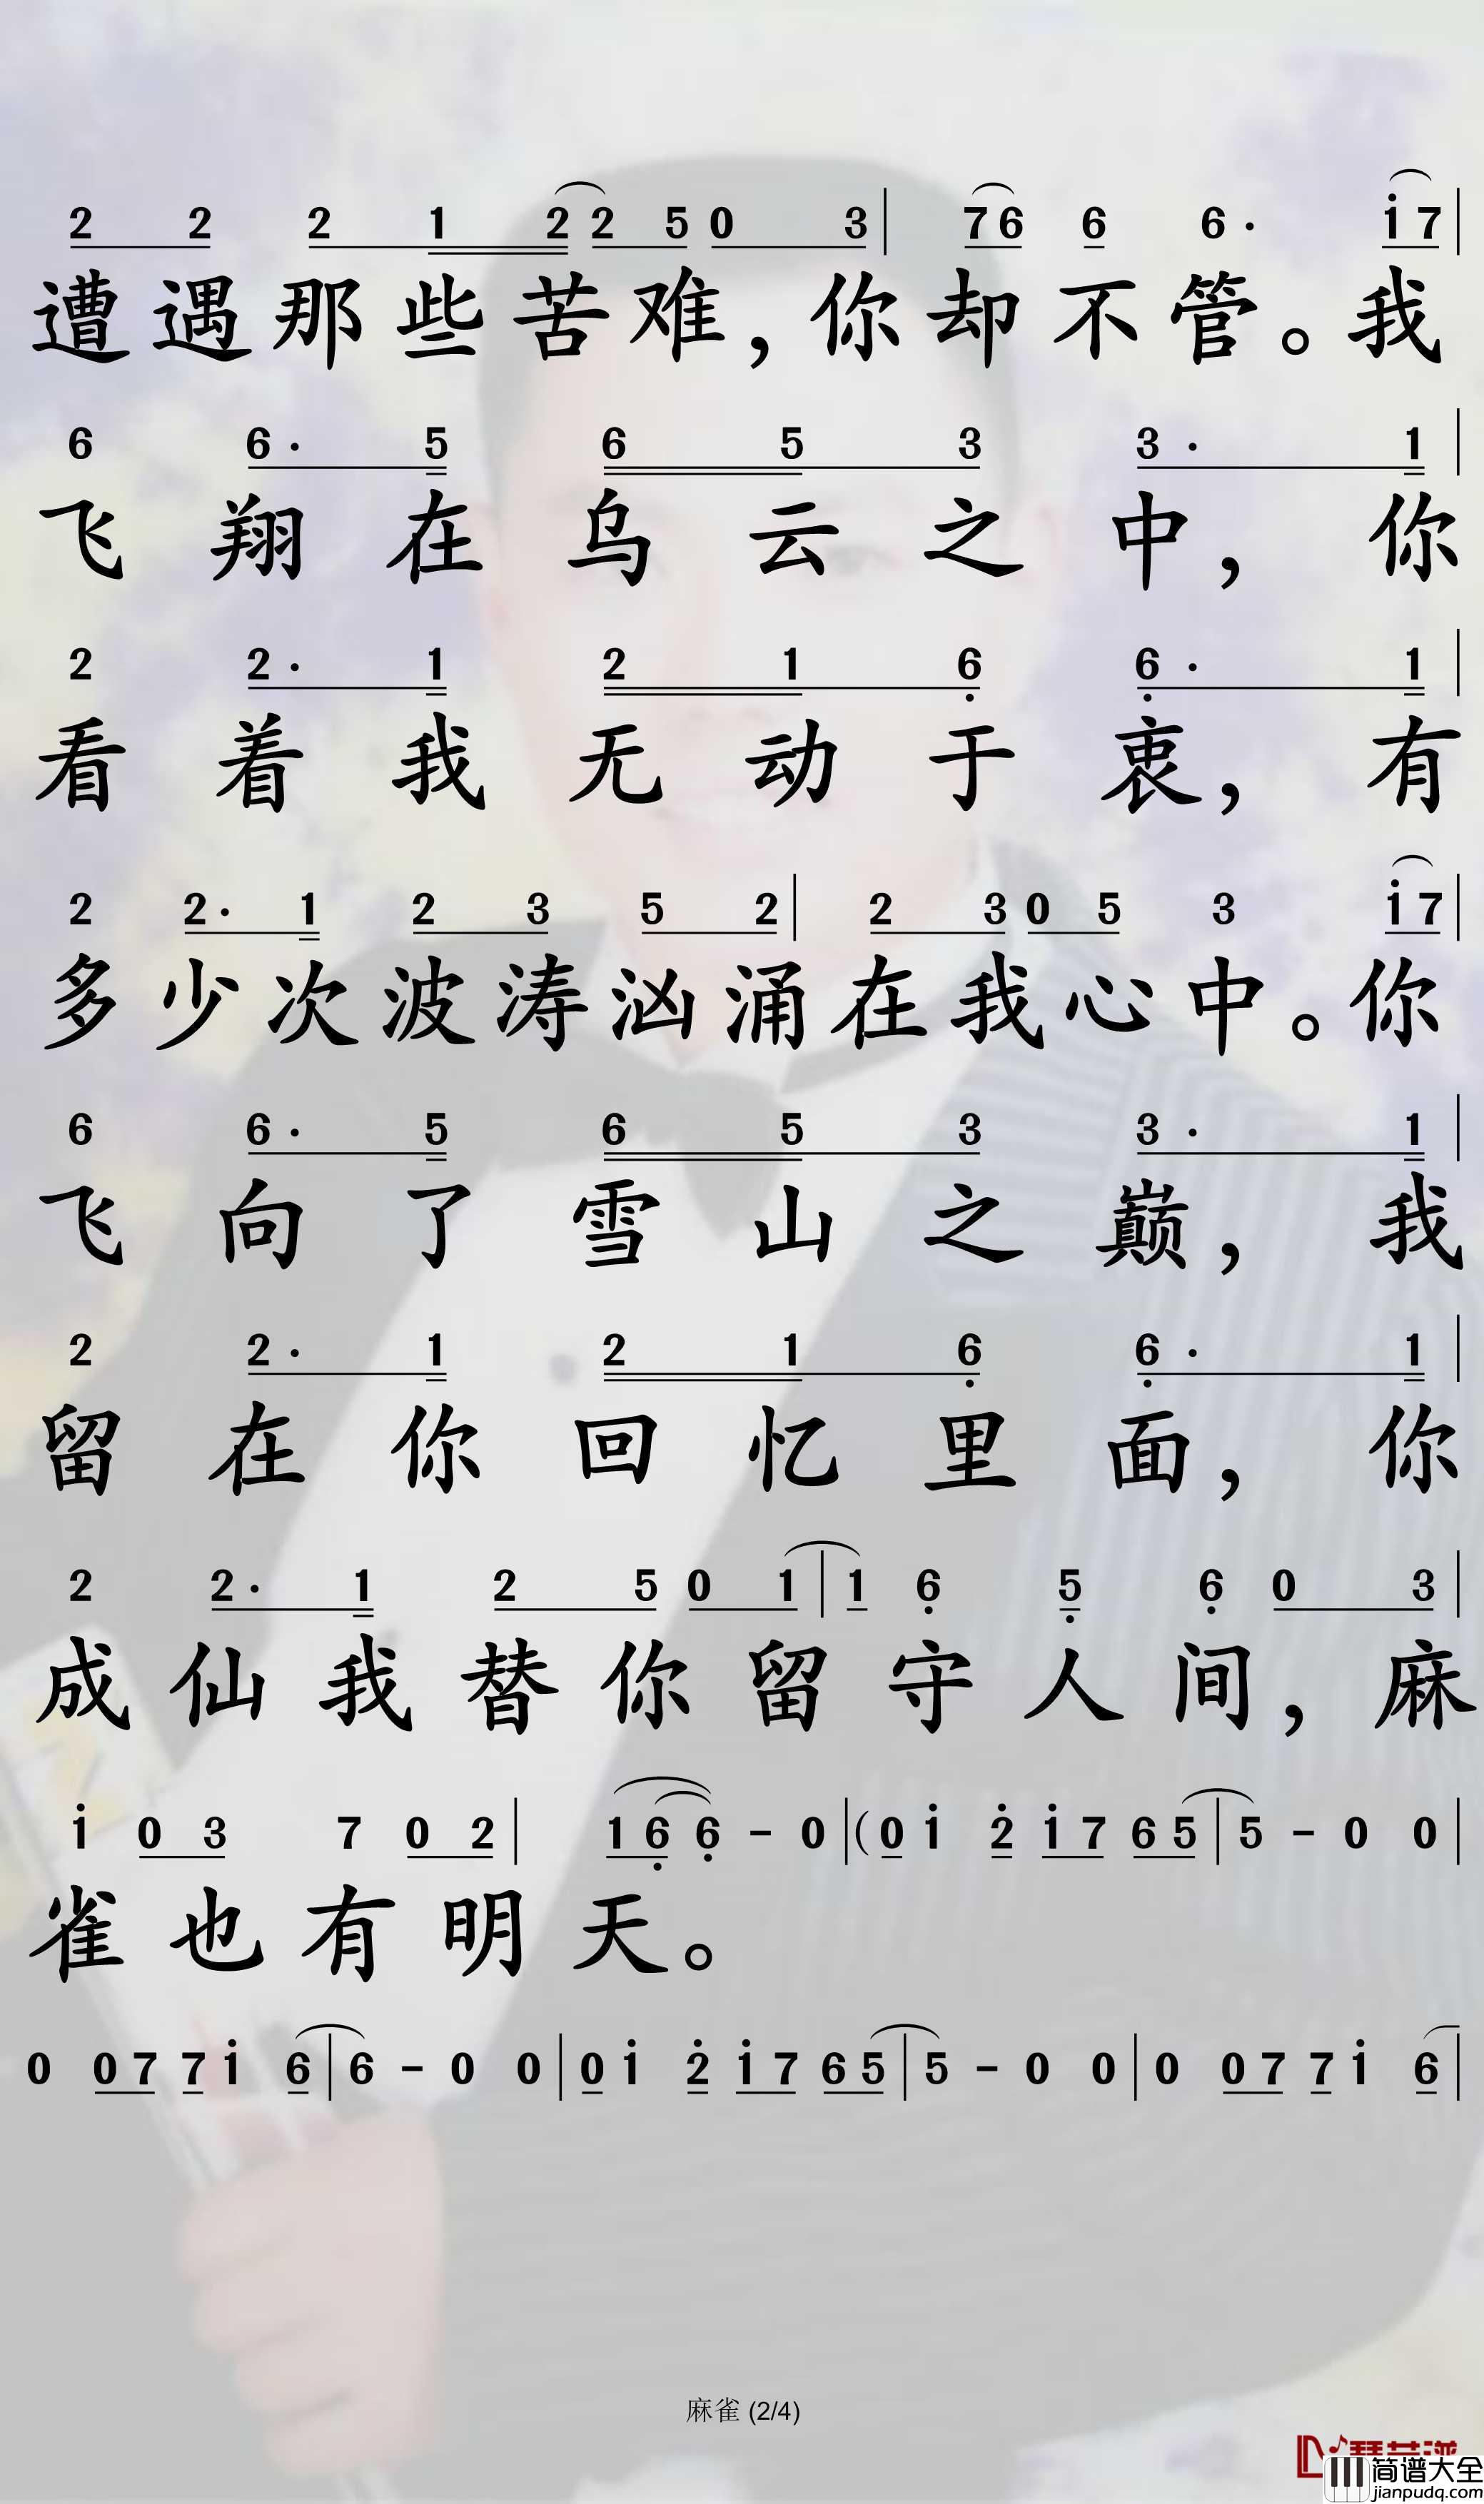 2 2 2 1 2 2 5 0 3 | 7 6 6 6· i 7 |
遭遇那些苦难，你却不管。我
6 6· 5 6 5 3 3· 1 |
飞翔在乌云之中，你
2 2· 1 2 1 6 6· 1 |
看着我无动于衷，有
2 2· 1 2 3 5 2 | 2 3 0 5 3 i 7 |
多少次波涛汹涌在我心中。你
6 6· 5 6 5 3 3· 1 |
飞向了雪山之巅，我
2 2· 1 2 1 6 6· 1 |
留在你回忆里面，你
2 2· 1 2 5 0 1 | 1 6 5 6 0 3 |
成仙我替你留守人间，麻
i 0 3 7 0 2 | 1 6 6 - 0 | (0 i 2 i 7 6 5 | 5 - 0 0 |
雀也有明天。
0 0 7 7 i 6 | 6 - 0 0 | 0 i 2 i 7 6 5 | 5 - 0 0 | 0 0 7 7 i 6 |
麻雀 (2/4)
简谱大全
jianpudq.com